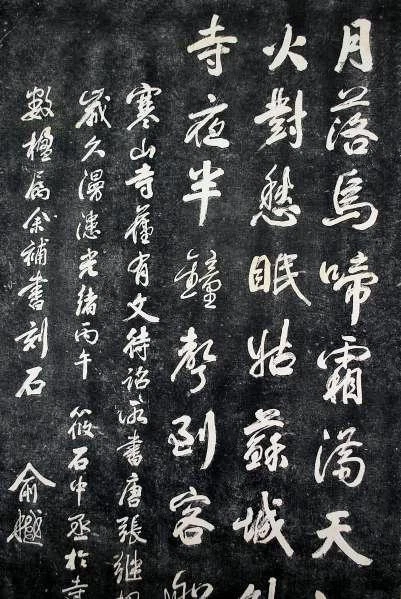 月落烏啼霜滿天
火對愁眠姑蘇城外
寺夜半鐘聲到客船
寒山寺舊有文待詔所書唐張繼
歲久漫漶光緒丙午筱石中丞於寺
數楹屬余補書刻石 俞樾